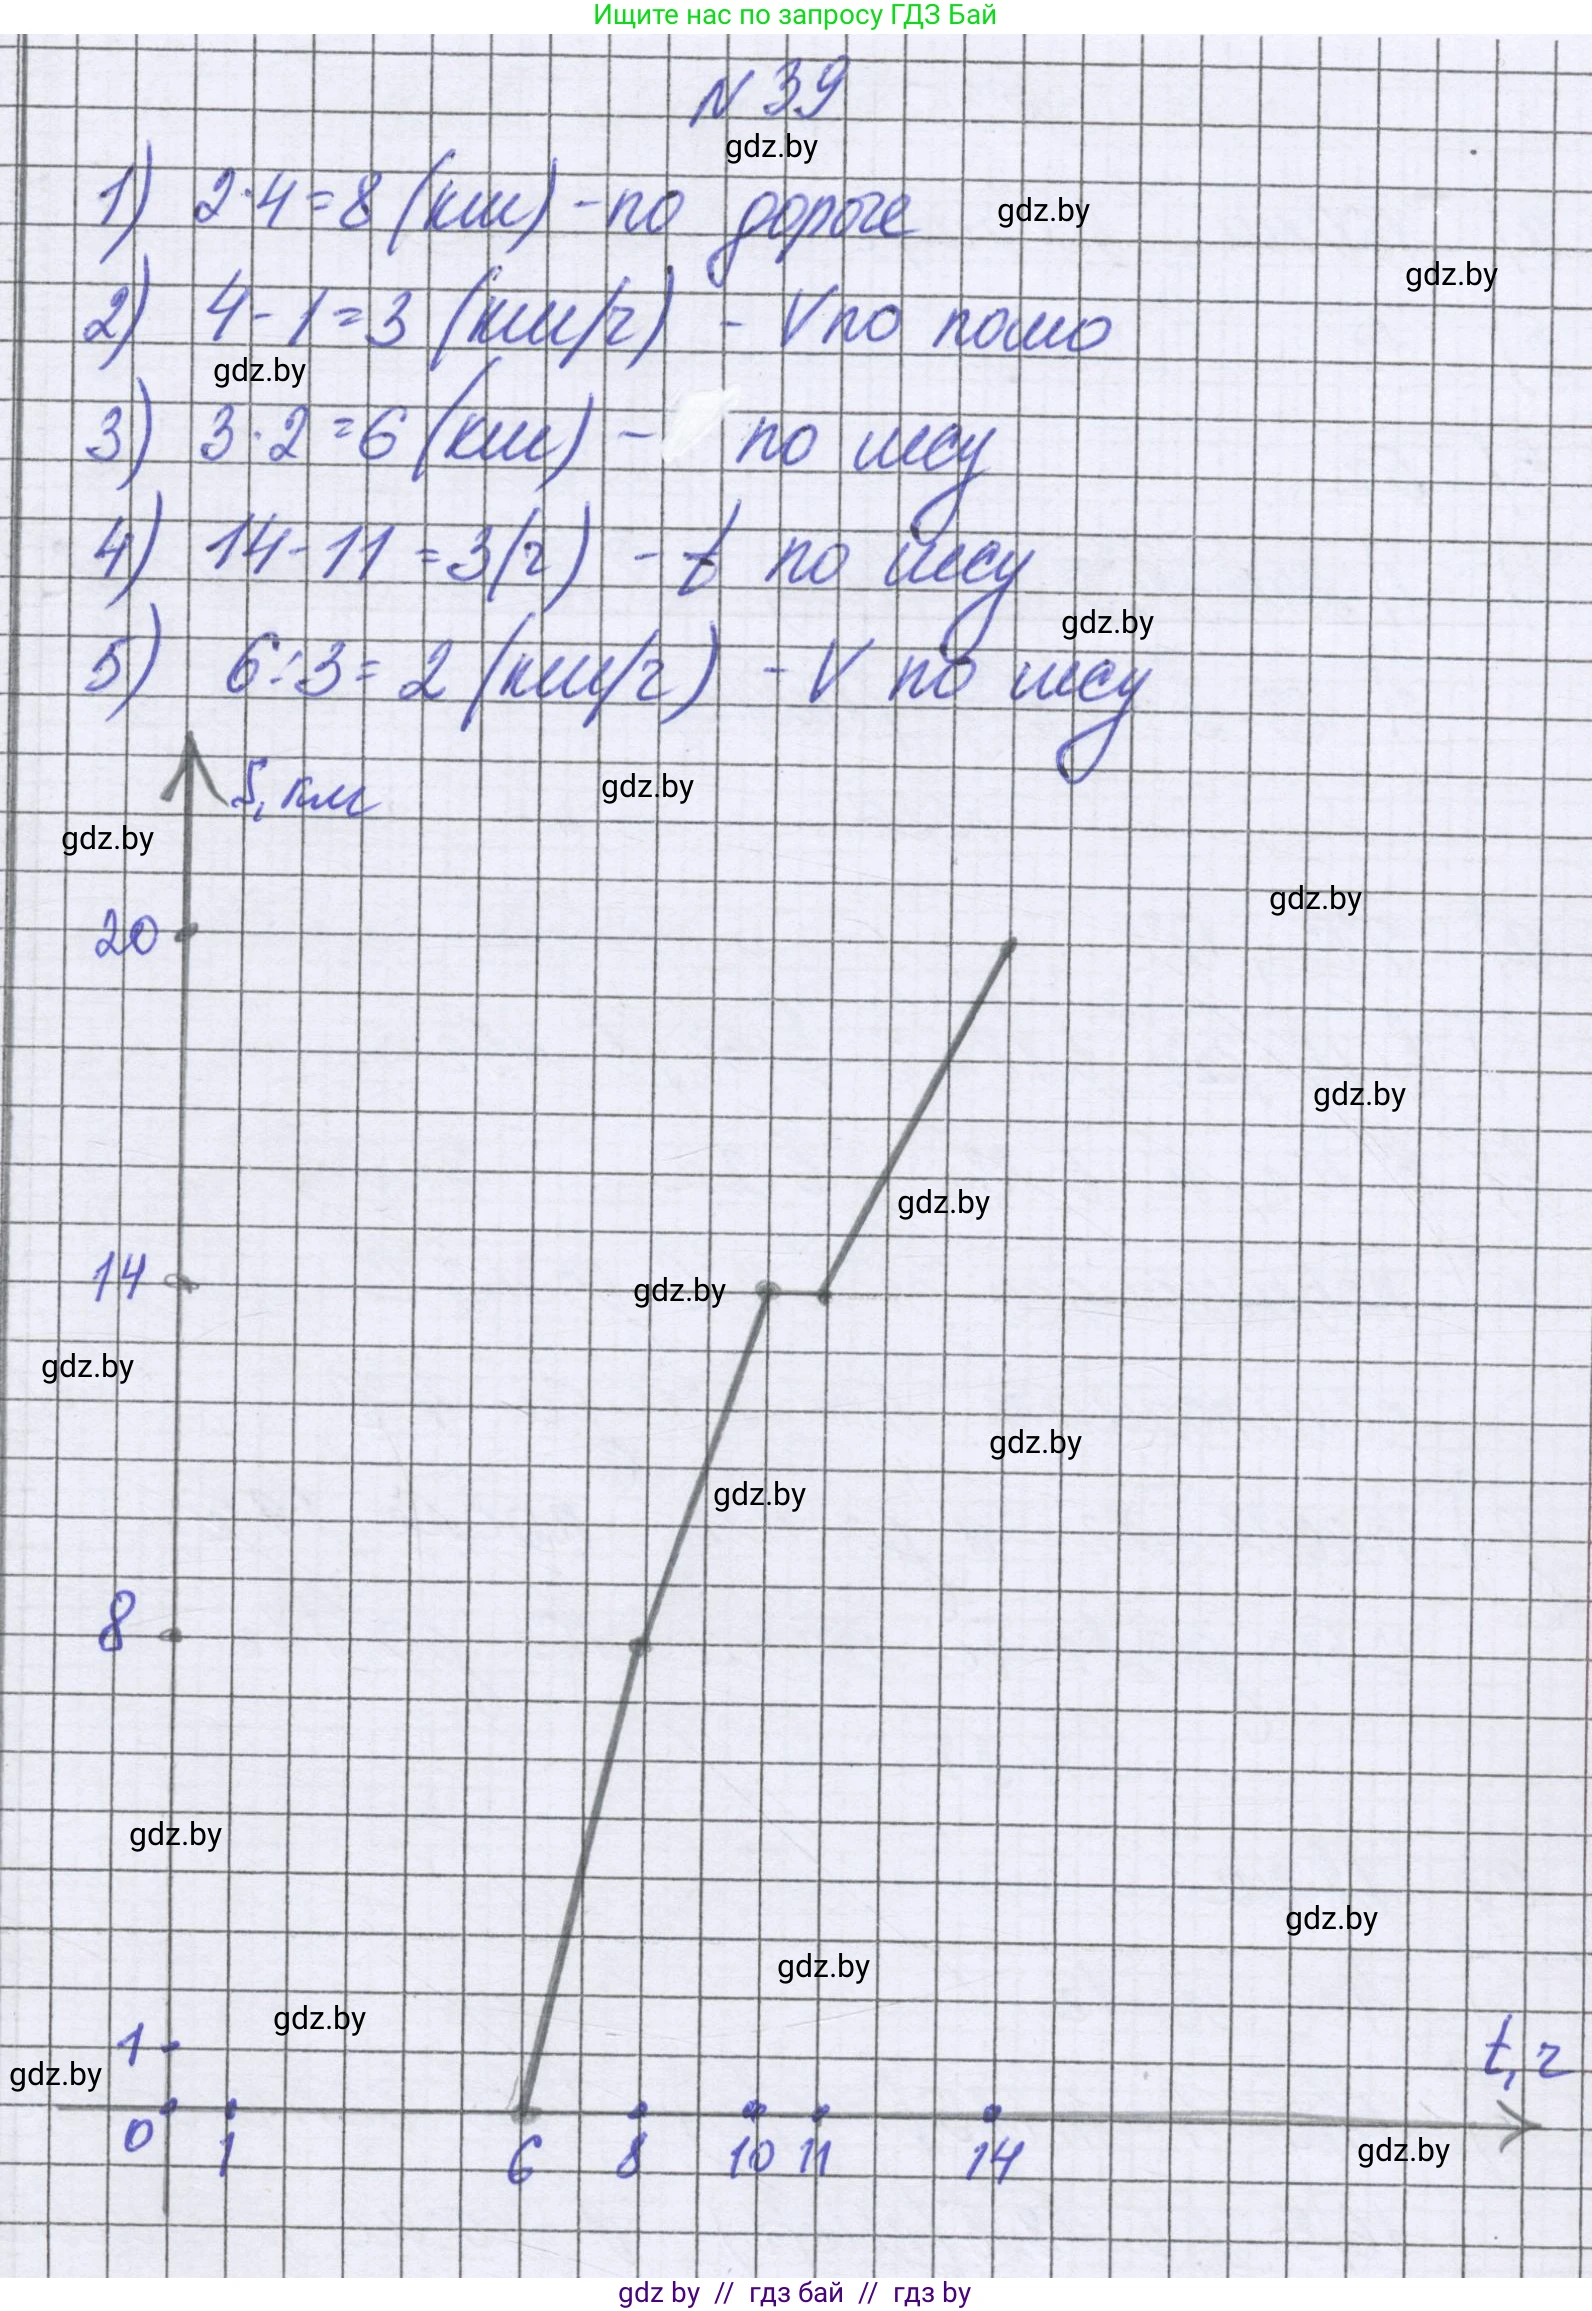 Ищите нас по запросу ГДЗ Бай
N 39
gdz.by
1) 2·4=8 (км) - по дороге
gdz.by
gdz.by
2) 4-1=3 (км/ч) - V по полю
gdz.by
3) 3·2=6 (км) - по лесу
4) 14-11=3(ч) - t по лесу
gdz.by
5) 6:3=2 (км/ч) - V по лесу
S, км
gdz.by
gdz.by
gdz.by
20
gdz.by
gdz.by
14
gdz.by
gdz.by
gdz.by
gdz.by
8
gdz.by
gdz.by
gdz.by
gdz.by
1
t, ч
gdz.by
0 1 6 8 10 11 14
gdz.by
gdz by // гдз бай // гдз by